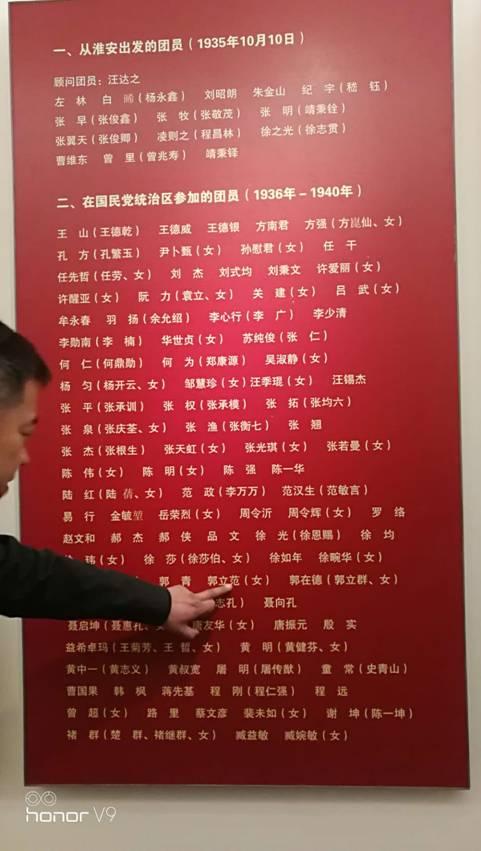 一、从淮安出发的团员（1935年10月10日）
顾问团员：汪达之
左 林 白 (杨永鑫） 刘昭朗 朱金山 纪 宇（嵇 钰）
张 早（张俊鑫） 张 牧（张敬茂） 张 明（靖秉铨）
张翼天（张俊卿） 凌则之（程昌林） 徐之光（徐志贯）
曹维东 曾 里（曾兆寿） 靖秉铎
二、在国民党统治区参加的团员（1936年－1940年）
王 山（王德乾） 王德威 王德银 方南君 方强（方崑仙、女）
孔 方（孔繁玉） 尹卜甄（女） 孙慰君（女） 任 干
任先哲（任劳、女） 刘 杰 刘式均 刘秉文 许爱丽（女）
许醒亚（女） 阮 力（袁立、女） 关 建（女） 吕 武（女）
牟永春 羽 扬（余允绍） 李心行（李 广） 李少清
李勋南（李 楠） 华世贞（女） 苏纯俊（张 仁）
何 仁（何鼎勋） 何 为（郑康源） 吴淑静（女）
杨 匀（杨开云、女） 邹慧珍（女）汪季琨（女） 汪锡杰
张 平（张承训） 张 权（张承模） 张 拓（张均六）
张 泉（张庆荃、女） 张 渔（张衡七） 张 翘
张 杰（张根生） 张天虹（女） 张光琪（女） 张若曼（女）
陈 伟（女） 陈 明（女） 陈 强 陈一华
陆 红（陆 蒨、女） 范 政（李万万） 范汉生（范敏言）
易 行 金毓堃 岳荣烈（女） 周令沂 周令辉（女） 罗 络
赵文和 郝 杰 郝 侠 品 文 徐 光（徐恩赐） 徐 均
玮（女） 徐 莎（徐莎伯、女） 徐如年 徐畹华（女）
郭 青 郭立范（女） 郭在德（郭立群、女）
志孔） 聂向孔
聂启坤（聂惠孔、女） 唐友华（女） 唐振元 殷 实
益希卓玛（王菊芳、王 哲、女） 黄 明（黄健芬、女）
黄中一（黄志义） 黄叔宽 屠 明（屠传猷） 童 常（史青山）
曹国果 韩 枫 蒋先基 程 刚（程仁强） 程 远
曾 超（女） 路 里 蔡文彦 裴未如（女） 谢 坤（陈一坤）
褚 群（楚 群、褚继群、女） 臧益敏 臧婉敏（女）
honor V9